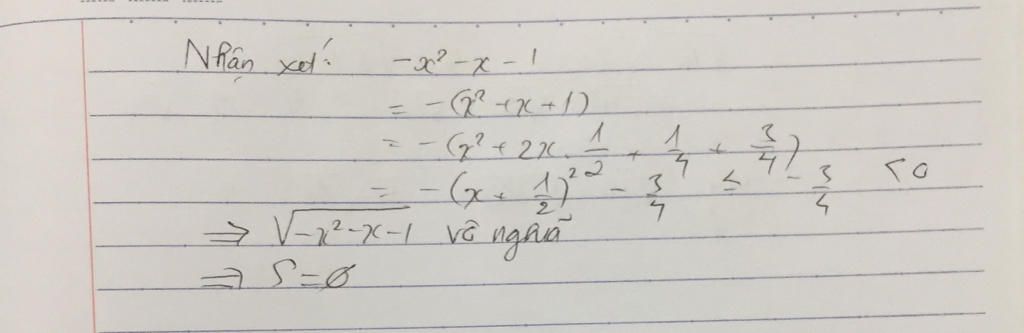 Nhận xét: -x² - x - 1
= -(x² + x + 1)
= -(x² + 2x . 1/2 + 1/4 + 3/4)
= -(x + 1/2)² - 3/4 ≤ -3/4 < 0
⇒ √(-x² - x - 1) vô nghĩa
⇒ S = ∅